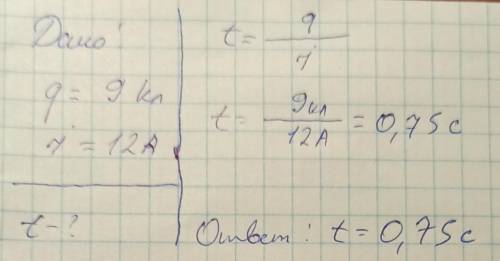 Дано:
q = 9 кл
i = 12 А
t - ?
t = q / i
t = 9 кл / 12 А = 0,75 с
Ответ: t = 0,75 с